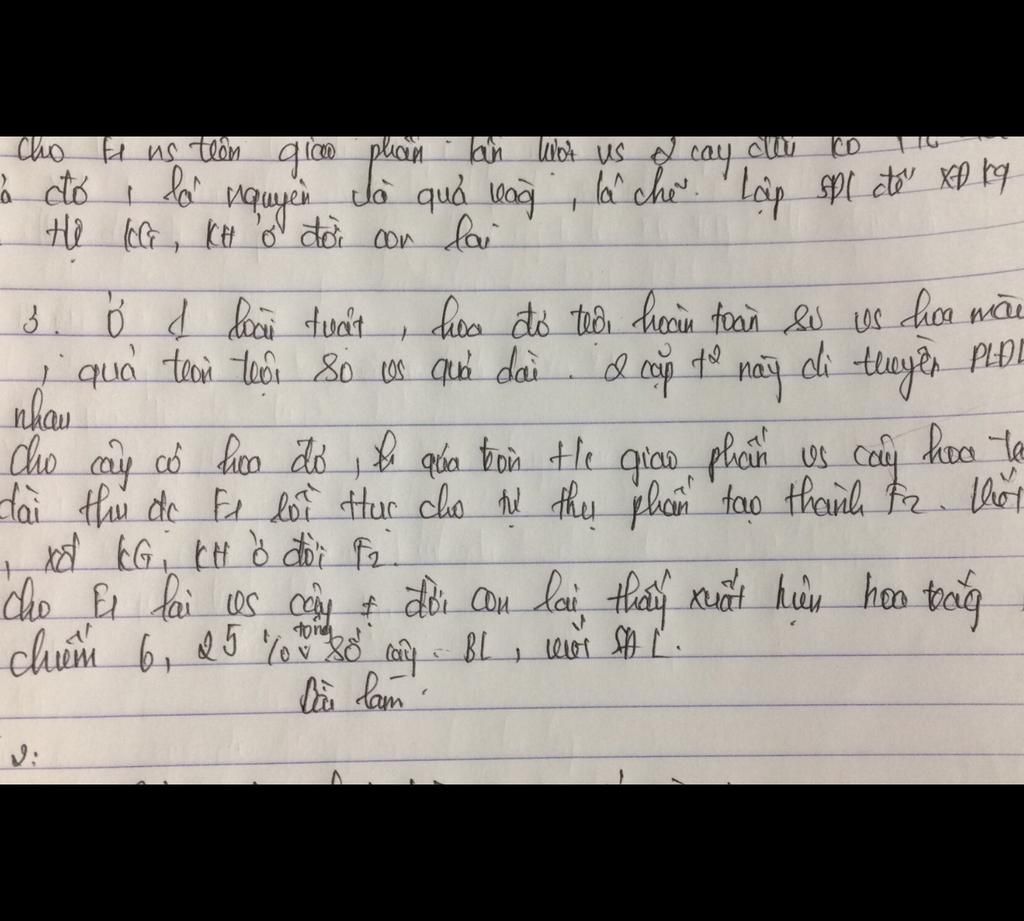 cho F1 ns trên giao phấn lần lượt vs 2 cây đều có
đỏ, lá nguyên và quả vàng, lá chẻ. Lập SĐL để XĐ kq
tlệ KG, KH ở đời con lai
3. Ở 1 loài tvật, hoa đỏ trội hoàn toàn so vs hoa
, quả tròn trội so vs quả dài. 2 cặp t² này di truyền PLĐL
nhau
Cho cây có hoa đỏ, quả tròn t/c giao phấn vs cây hoa
dài thu đc F1 rồi tục cho tự thụ phấn tạo thành F2. Viết
, xđ KG, KH ở đời F2.
Cho F1 lai vs cây ≠ đời con lai thấy xuất hiện hoa trắng
chiếm 6,25% tổng số cây. BL, viết SĐL.
Bài làm
2: